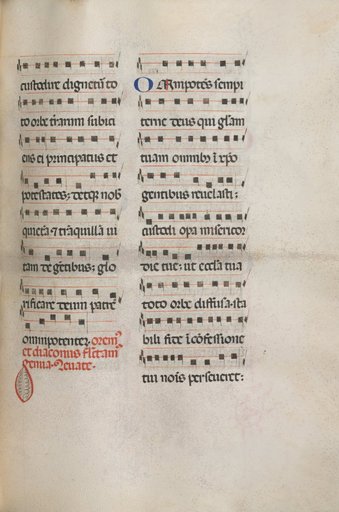 custodire dignetur to
to orbe terrarum subici
ens ei principatus et
potestates: detque nob
quietā ⁊ trāquillā ui
tam degētibus: glo
rificare deum patrē
omnipotentem. orem9
et diaconus flectam9
genua. Leuate.
Omnipotēs sempi
terne deus qui glam
tuam omnibꝫ ī xpo
gentibus reuelasti:
custodi opa misericor
die tue: ut ecclia tua
toto orbe diffusa. sta
bili fide ī cōfessione
tui nois perseueret: